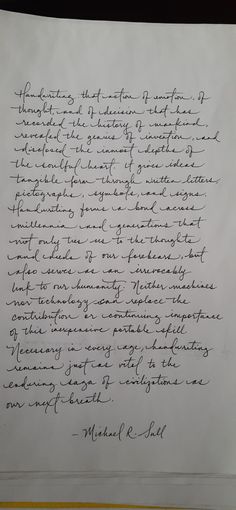 Handwriting that action of emotion, of
thought, and of decision that has
recorded the history of mankind,
revealed the genius of invention, and
disclosed the inmost depths of
the soulful heart. it gives ideas
tangible form through written letters,
pictographs, symbols, and signs.
Handwriting forms a bond across
millennia and generations that
not only ties us to the thoughts
and deeds of our forebears, but
also serves as an irrevocably
link to our humanity. Neither machines
nor technology can replace the
contribution or continuing importance
of this inexpensive portable skill
Necessary in every age, handwriting
remains just as vital to the
enduring saga of civilizations as
our next breath.
- Michael R. Sull